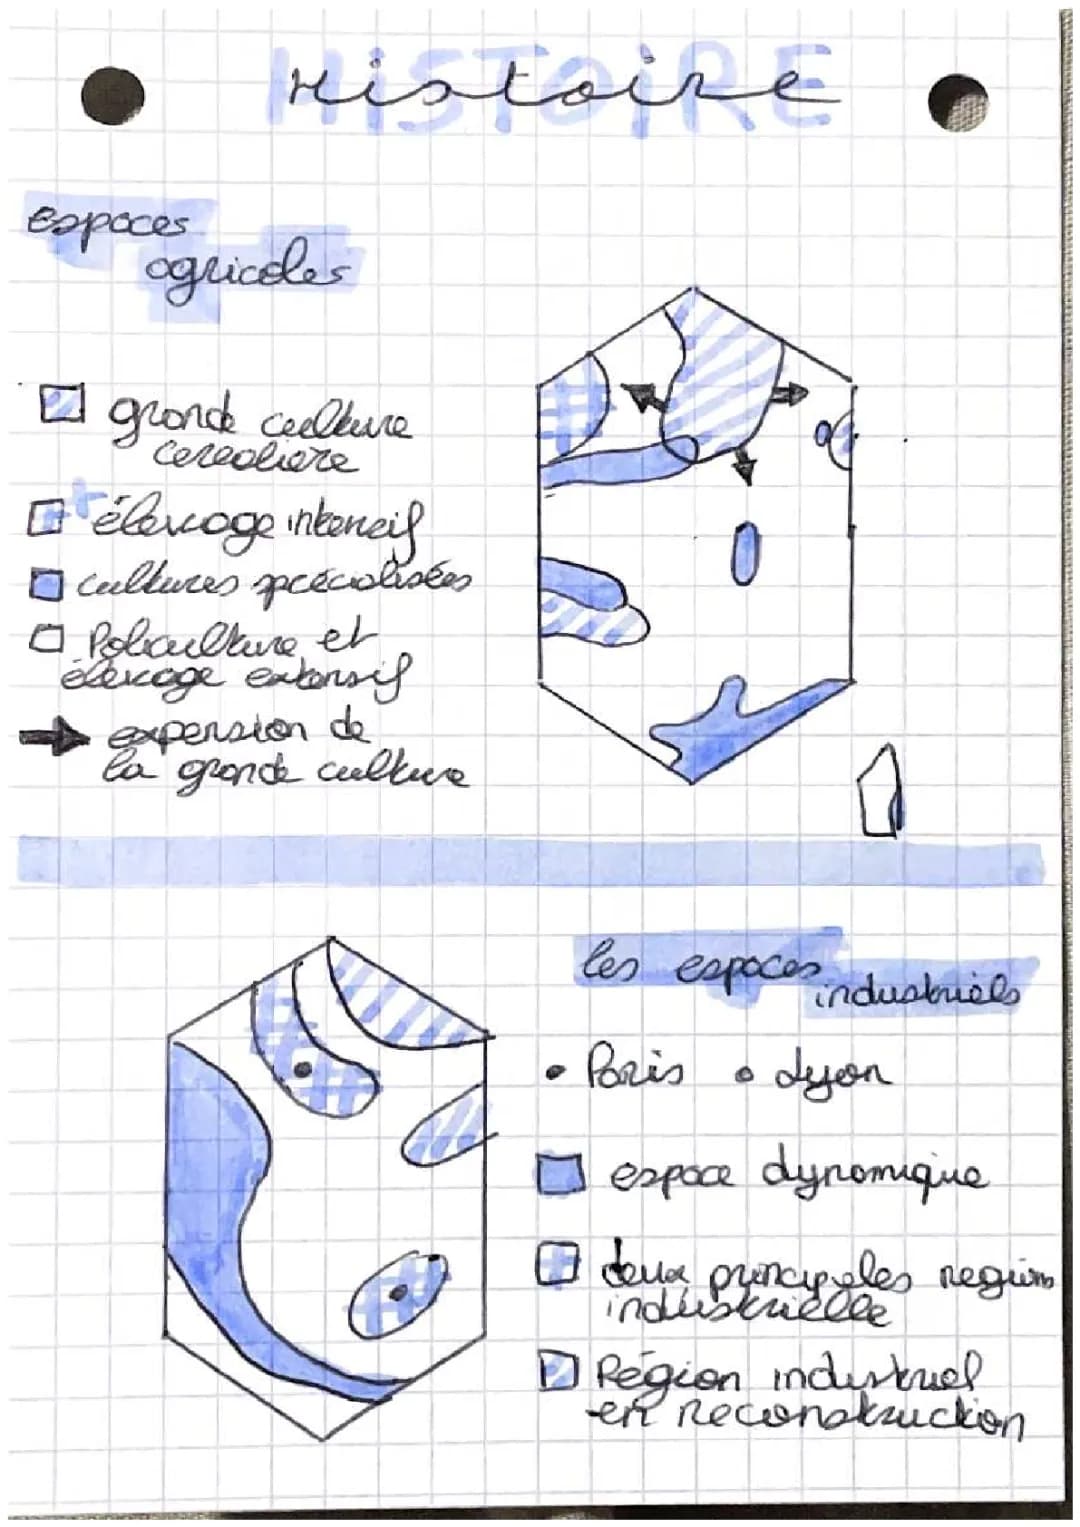 Histoire
espaces
agricoles
grande culture
cerealiere
élevage intensif
cultures spécialisées
Policulture et
élevage extensif
expension de
la grande culture
les espaces
industriels
• Paris • Lyon
espace dynamique
deux principales regions
industrielle
Région industriel
en reconstruction